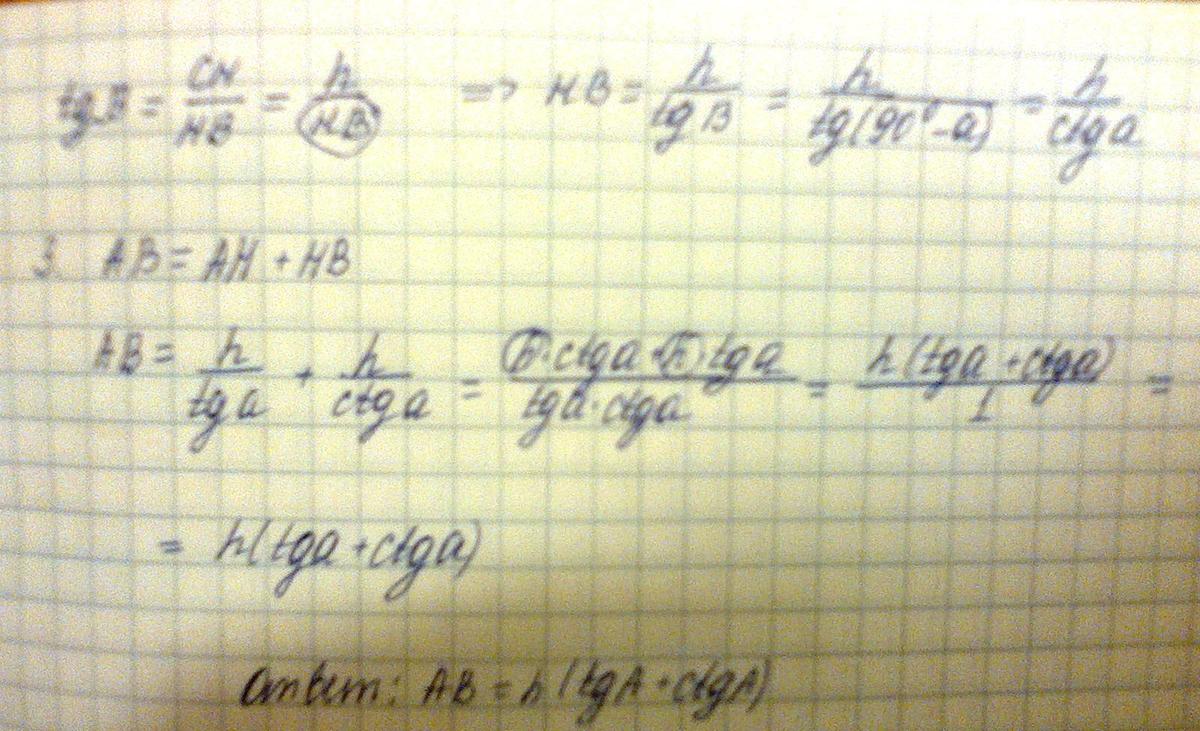 tg B = CH/HB = h/HB => HB = h/tg B = h/tg(90° - a) = h/ctg a
3. AB = AH + HB
AB = h/tg a + h/ctg a = h·ctg a + h·tg a/tg a·ctg a = h(tg a + ctg a)/1 =
= h(tg a + ctg a)
Ответ: AB = h(tg A + ctg A)